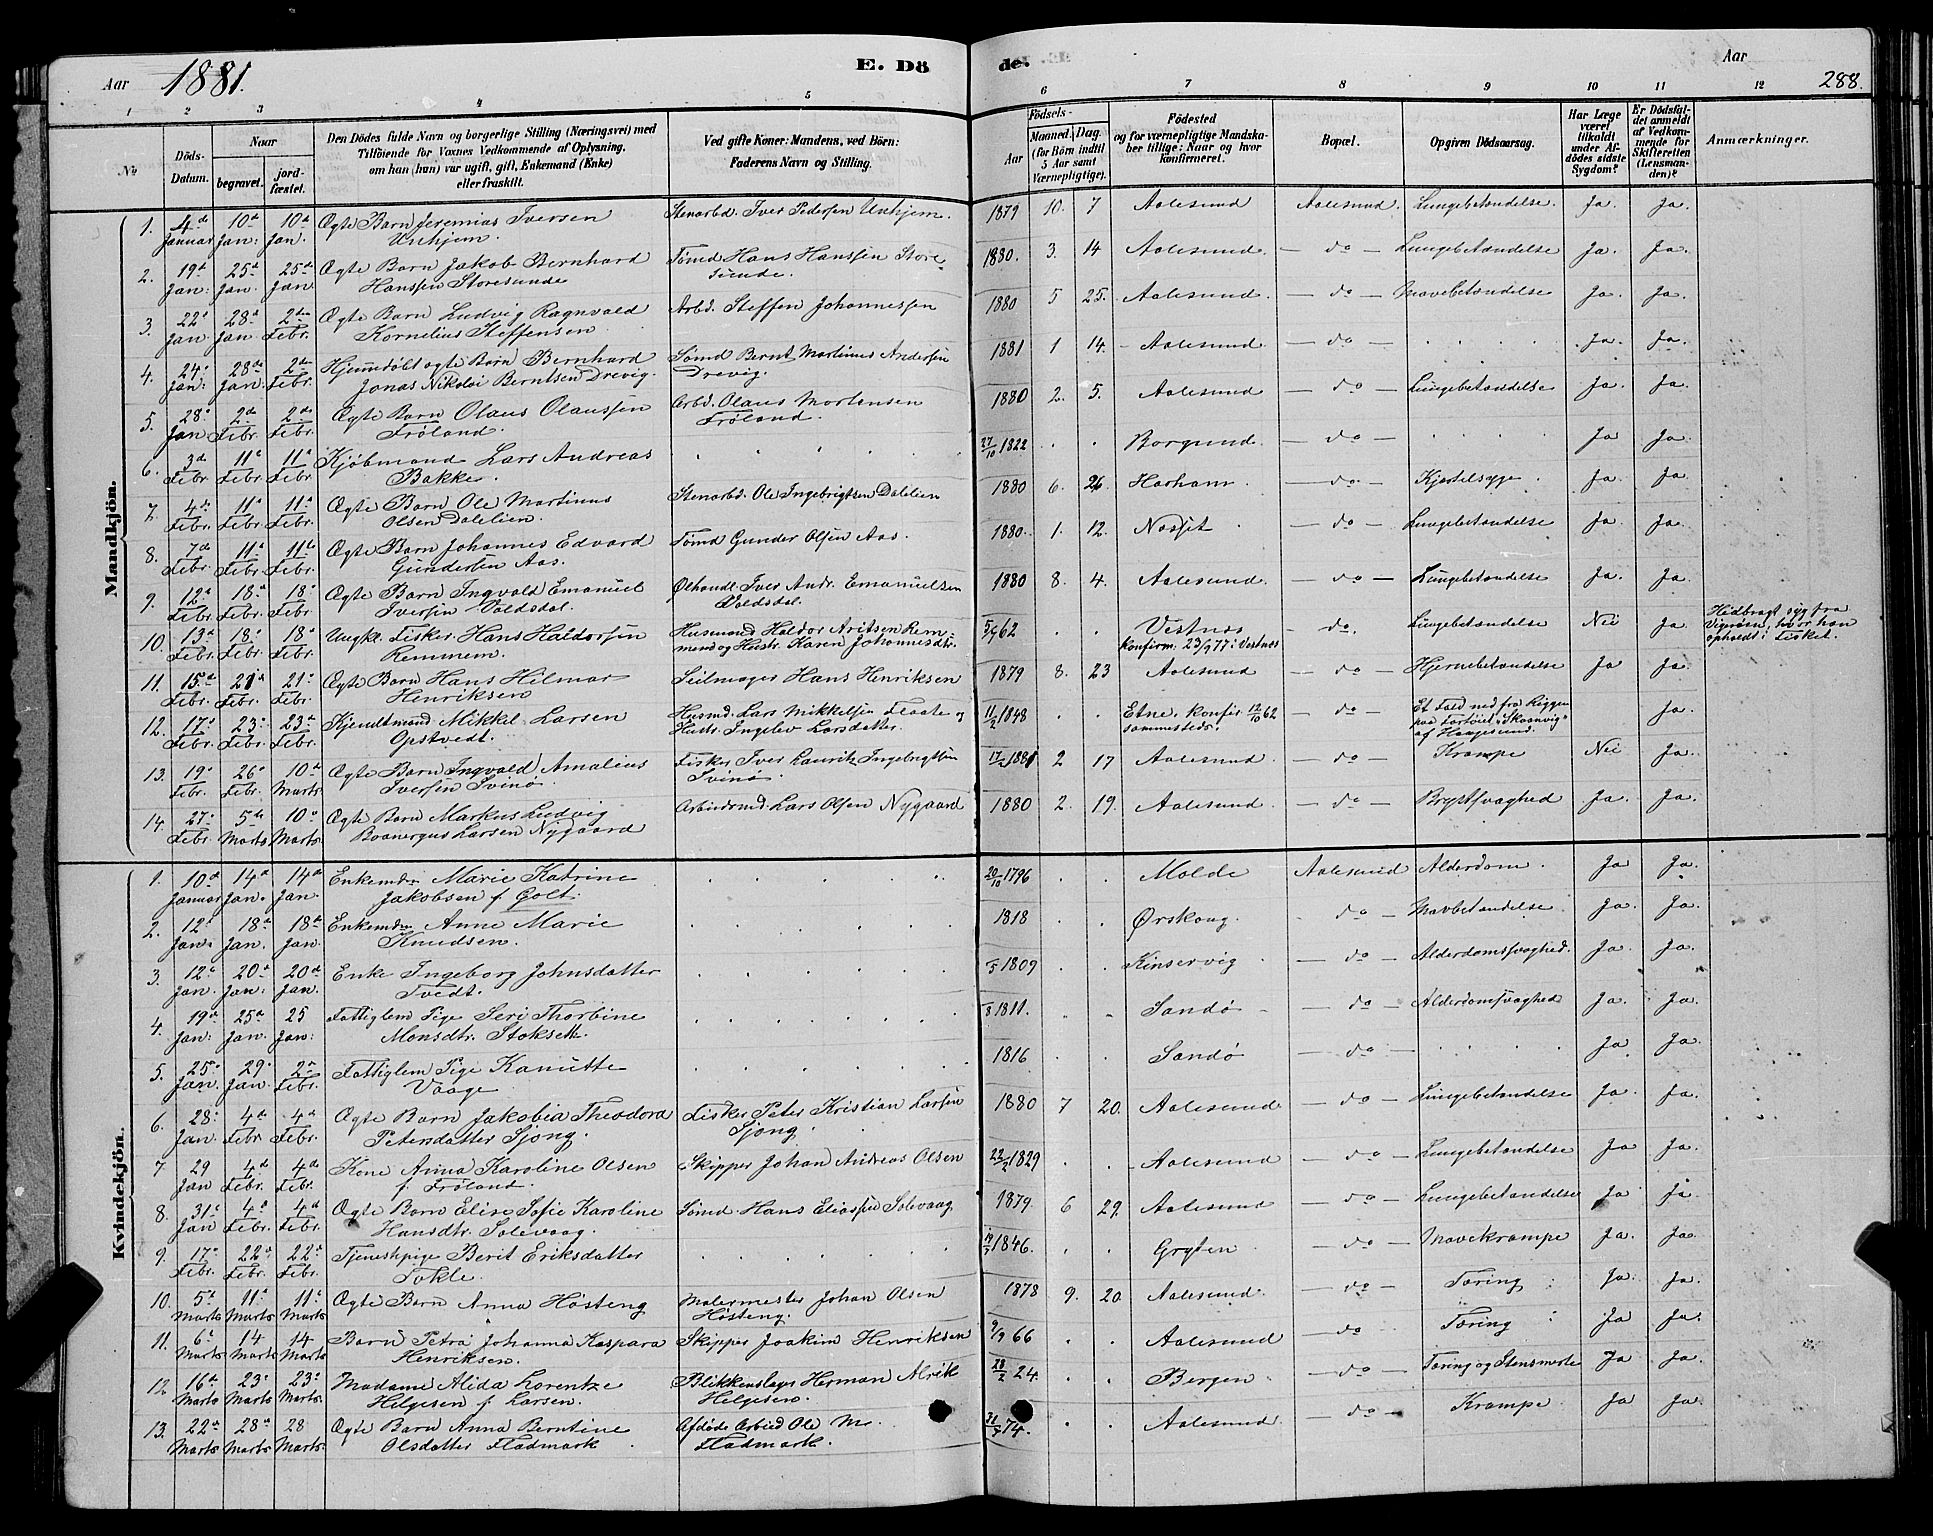 Aar 1881.
E. Dö
de.
Aar
288.
1 2 3 4 5 6 7 8 9 10 11 12
No
Döds-Datum.
Naar
begravet.
jord-fæstet.
Den Dödes fulde Navn og borgerlige Stilling (Næringsvei) med
Tilföiende for Voxnes Vedkommende af Oplysning,
om han (hun) var ugift, gift, Enkemand (Enke)
eller fraskilt.
Ved gifte Koner: Mandens, ved Börn:
Faderens Navn og Stilling.
Födsels-
Aar
Maaned. Dag.
(for Börn indtil
5 Aar samt
Værnepligtige).
Födested
og for værnepligtige Mandska-
ber tillige: Naar og hvor
konfirmeret.
Bopæl.
Opgiven Dödsaarsag.
Har Læge
været
tilkaldt
under Af-
dödes sidste
Sygdom?
Er Dödsfal-
det anmeldt
af Vedkom-
mende for
Skifteretten
(Lensman-
den)?
Anmærkninger.
Mandkjön.
1. 4de Januar 10d Jan: 10d Jan. Ægte Barn Jeremias Iversen Unhjem. Stenarbd. Iver Pedersen Unhjem. 1879 10. 7 Aalesund Aalesund. Lungebetændelse. Ja. Ja.
2. 19d Jan: 25d Jan. 25d Jan. Ægte Barn Jakob Bernhard Hanssen Storesunde Tømd Hans Hanssen Storesunde. 1880. 3. 14 Aalesund. – do – Lungebetændelse Ja. Ja.
3. 22d Jan. 28d Jan. 2den Febr. Ægte Barn Ludvig Ragnvald Kornelius Steffensen. Arbd. Steffen Johannessen 1880 5 25. Aalesund. – do – Mavebetændelse Ja. Ja.
4. 24d Jan: 28de Jan. 2den Febr. Hjemmedøbt ægte Barn Bernhard Jonas Nikolai Berntsen Drevig. Sømd Bernt Martinus Andersen Drevig. 1881 1 14. Aalesund. – do – Ja. Ja.
5. 28d Jan. 2de Febr. 2de Febr. Ægte Barn Olaus Olaussen Frøland. Arbd. Olaus Mortensen Frøland. 1880 2. 5. Aalesund – do – Lungebetændelse Ja. Ja.
6. 3d Febr. 11d Febr. 11d Febr. Kjøbmand Lars Andreas Bakke. 27/10 1822 Borgund. – do – Ja Ja.
7. 4de Febr. 11d Febr. 11d Febr. Ægte Barn Ole Martinus Olsen Dalelien. Stenarbd. Ole Ingebrigtsen Dalelien 1880 6. 26. Harham. – do – Kjertelsyge. Ja Ja.
8. 7de Febr. 11d Febr. 11te Febr. Ægte Barn Johannes Edvard Gundersen Aas. Tømd Gunder Olsen Aas. 1880. 1. 12. Nesset – do – Lungebetændelse Ja Ja.
9. 12d Febr. 18d Febr. 18d Febr. Ægte Barn Ingvald Emanuel Iversen Valdsdal. Ølhandl. Iver Andr. Emanuelsen Valdsdal. 1880 8. 4. Aalesund. – do – Lungebetændelse Ja. Ja
10. 13d Febr. 18d Febr. 18d Febr. Ungk. Fisker Hans Haldorsen Remmem. Husmand Haldor Aritsen Remmem og Hustr. Karen Johannesdtr. 62 Vestnæs konfirm. 23/9 77 i Vestnæs – do. Lungebetændelse Nei Ja Hidbragt syg fra Vigrøen, hvor han opholdt i Fisket.
11. 15d Febr. 21d Febr. 21d Febr. Ægte Barn Hans Hilmar Henriksen Seilmager Hans Henriksen 1879 8. 23 Aalesund – do – Hjernebetændelse Ja Ja.
12. 17d Febr. 23d Febr. 23de Febr. Kjendtmand Mikkel Larsen Opstvedt. Husmd. Lars Mikkelsen Flaate og Hustr. Ingelev Larsdatter. 11/2 1848 Etne. konfir 12/10 62 sammesteds. – do – Et Fald ned fra Riggen paa Fartøiet "Skaanvig" af Haugesund. Ja.
13. 19d Febr. 26d Febr. 10de Marts. Ægte Barn Ingvald Amalius Iversen Svinø. Fisker Iver Laurits Ingebrigtsen Svinø. 17/2 1881 2 17 Aalesund – do – Krampe Nei Ja.
14. 27d Febr. 5te Marts 10d Marts. Ægte Barn Markus Ludvig Boanerges Larsen Nygaard Arbeidsmd. Lars Olsen Nygaard 1880 2. 19. Aalesund. – do – Brystsvaghed Ja. Ja.
Kvindekjön.
1. 10d Januar 14d Jan. 14d Jan. Enkemdm Marie Katrine Jakobsen f. Golt. 20/10 1796 Molde Aalesund Alderdom. Ja Ja.
2. 12d Jan. 18d Jan. 18d Jan. Enkemdm Anne Marie Knudsen. 1818 Ørskoug. do – Mavbetændelse. Ja. Ja.
3. 12d Jan. 20d Jan: 20d Jan. Enke Ingeborg Johnsdatter Tvedt. /5 1809 Kinservig – do – Alderdomssvaghed. Ja Ja.
4. 19d Jan: 25d Jan. 25 Jan: Fattiglem Pige Seri Thorbine Monsdtr. Stoksett. /8 1811. Sandø – do – Alderdomssvaghed Ja. Ja.
5. 25d Jan. 29d Jan. 2den Febr. Fattiglem Pige Kanutte Vaage. 1816 Sandø – do – Ja Ja.
6. 28d Jan. 4d Febr 4d Febr. Ægte Barn Jakobia Theodora Petersdatter Sjong. Fisker Peter Kristian Larsen Sjong. 1880 7 20. Aalesund – do – Lungebetændelse Ja. Ja.
7. 29 Jan 4de Febr. 4de Febr. Kone Anna Karoline Olsen f. Frøland. Skipper Johan Andreas Olsen 22/2 1829 Aalesund – do – Lungebetændelse Ja Ja.
8. 31d Jan 4d Febr. 4d Febr. Ægte Barn Elise Sofie Karoline Hansdtr. Solevaag. Sømd Hans Eliassen Solevaag 1879. 6 29. Aalesund – do – Lungebetændelse Ja Ja.
9. 17d Febr. 22d Febr. 22d Febr. Tjenestepige Berit Eriksdatter Tokle. 1846. Gryten – do – Mavekrampe Ja. Ja.
10. 5d Marts 11d Marts 11d Marts. Ægte Barn Anna Høsteng Malermester Johan Olsen Høsteng. 1878 9. 20. Aalesund. – do – Tæring Ja. Ja.
11. 6d Marts 14 Marts 14 Marts. Barn Petra Johanna Kaspara Henriksen. Skipper Joakim Henriksen 9/9 66 Aalesund – do Tæring Ja Ja.
12 16d Marts 23d Marts 23d Marts. Madame Alida Lorentze Helgesen f. Larsen. Blikkenslager Herman Alrik Helgesen 28/2 24. Bergen – do – Tæring og Stensmerte Ja Ja.
13. 22d Marts 28d Marts 28 Marts. Ægte Barn Anna Berntine Olsdatter Fladmark. Afdøde Arbied Ole M. Fladmark. 74. Aalesund – do – Krampe Ja Ja.